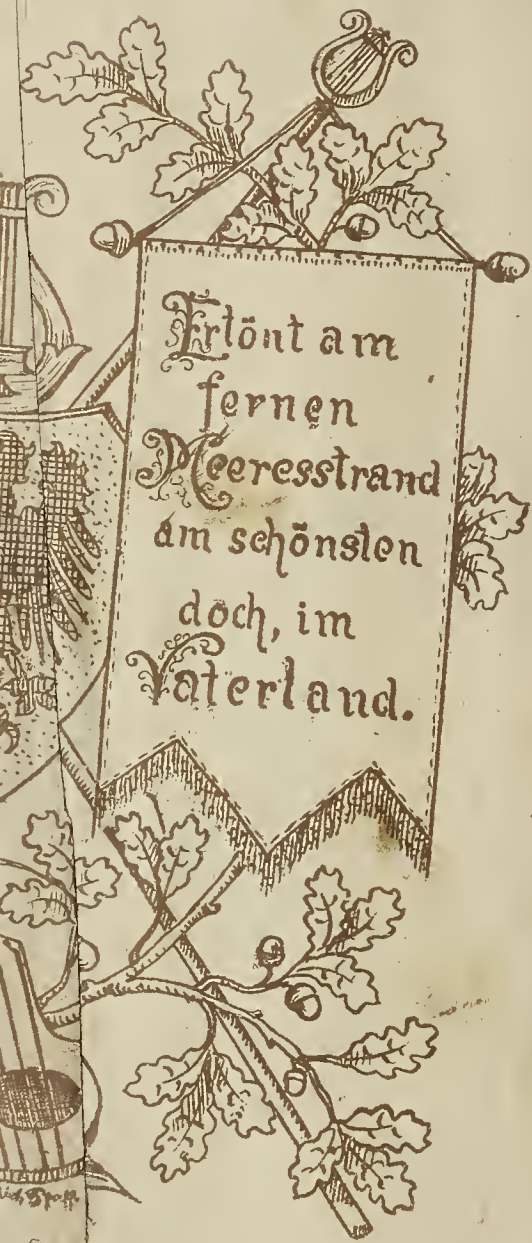 Ertönt am
fernen
Meeresstrand
am schönsten
doch, im
Vaterland.